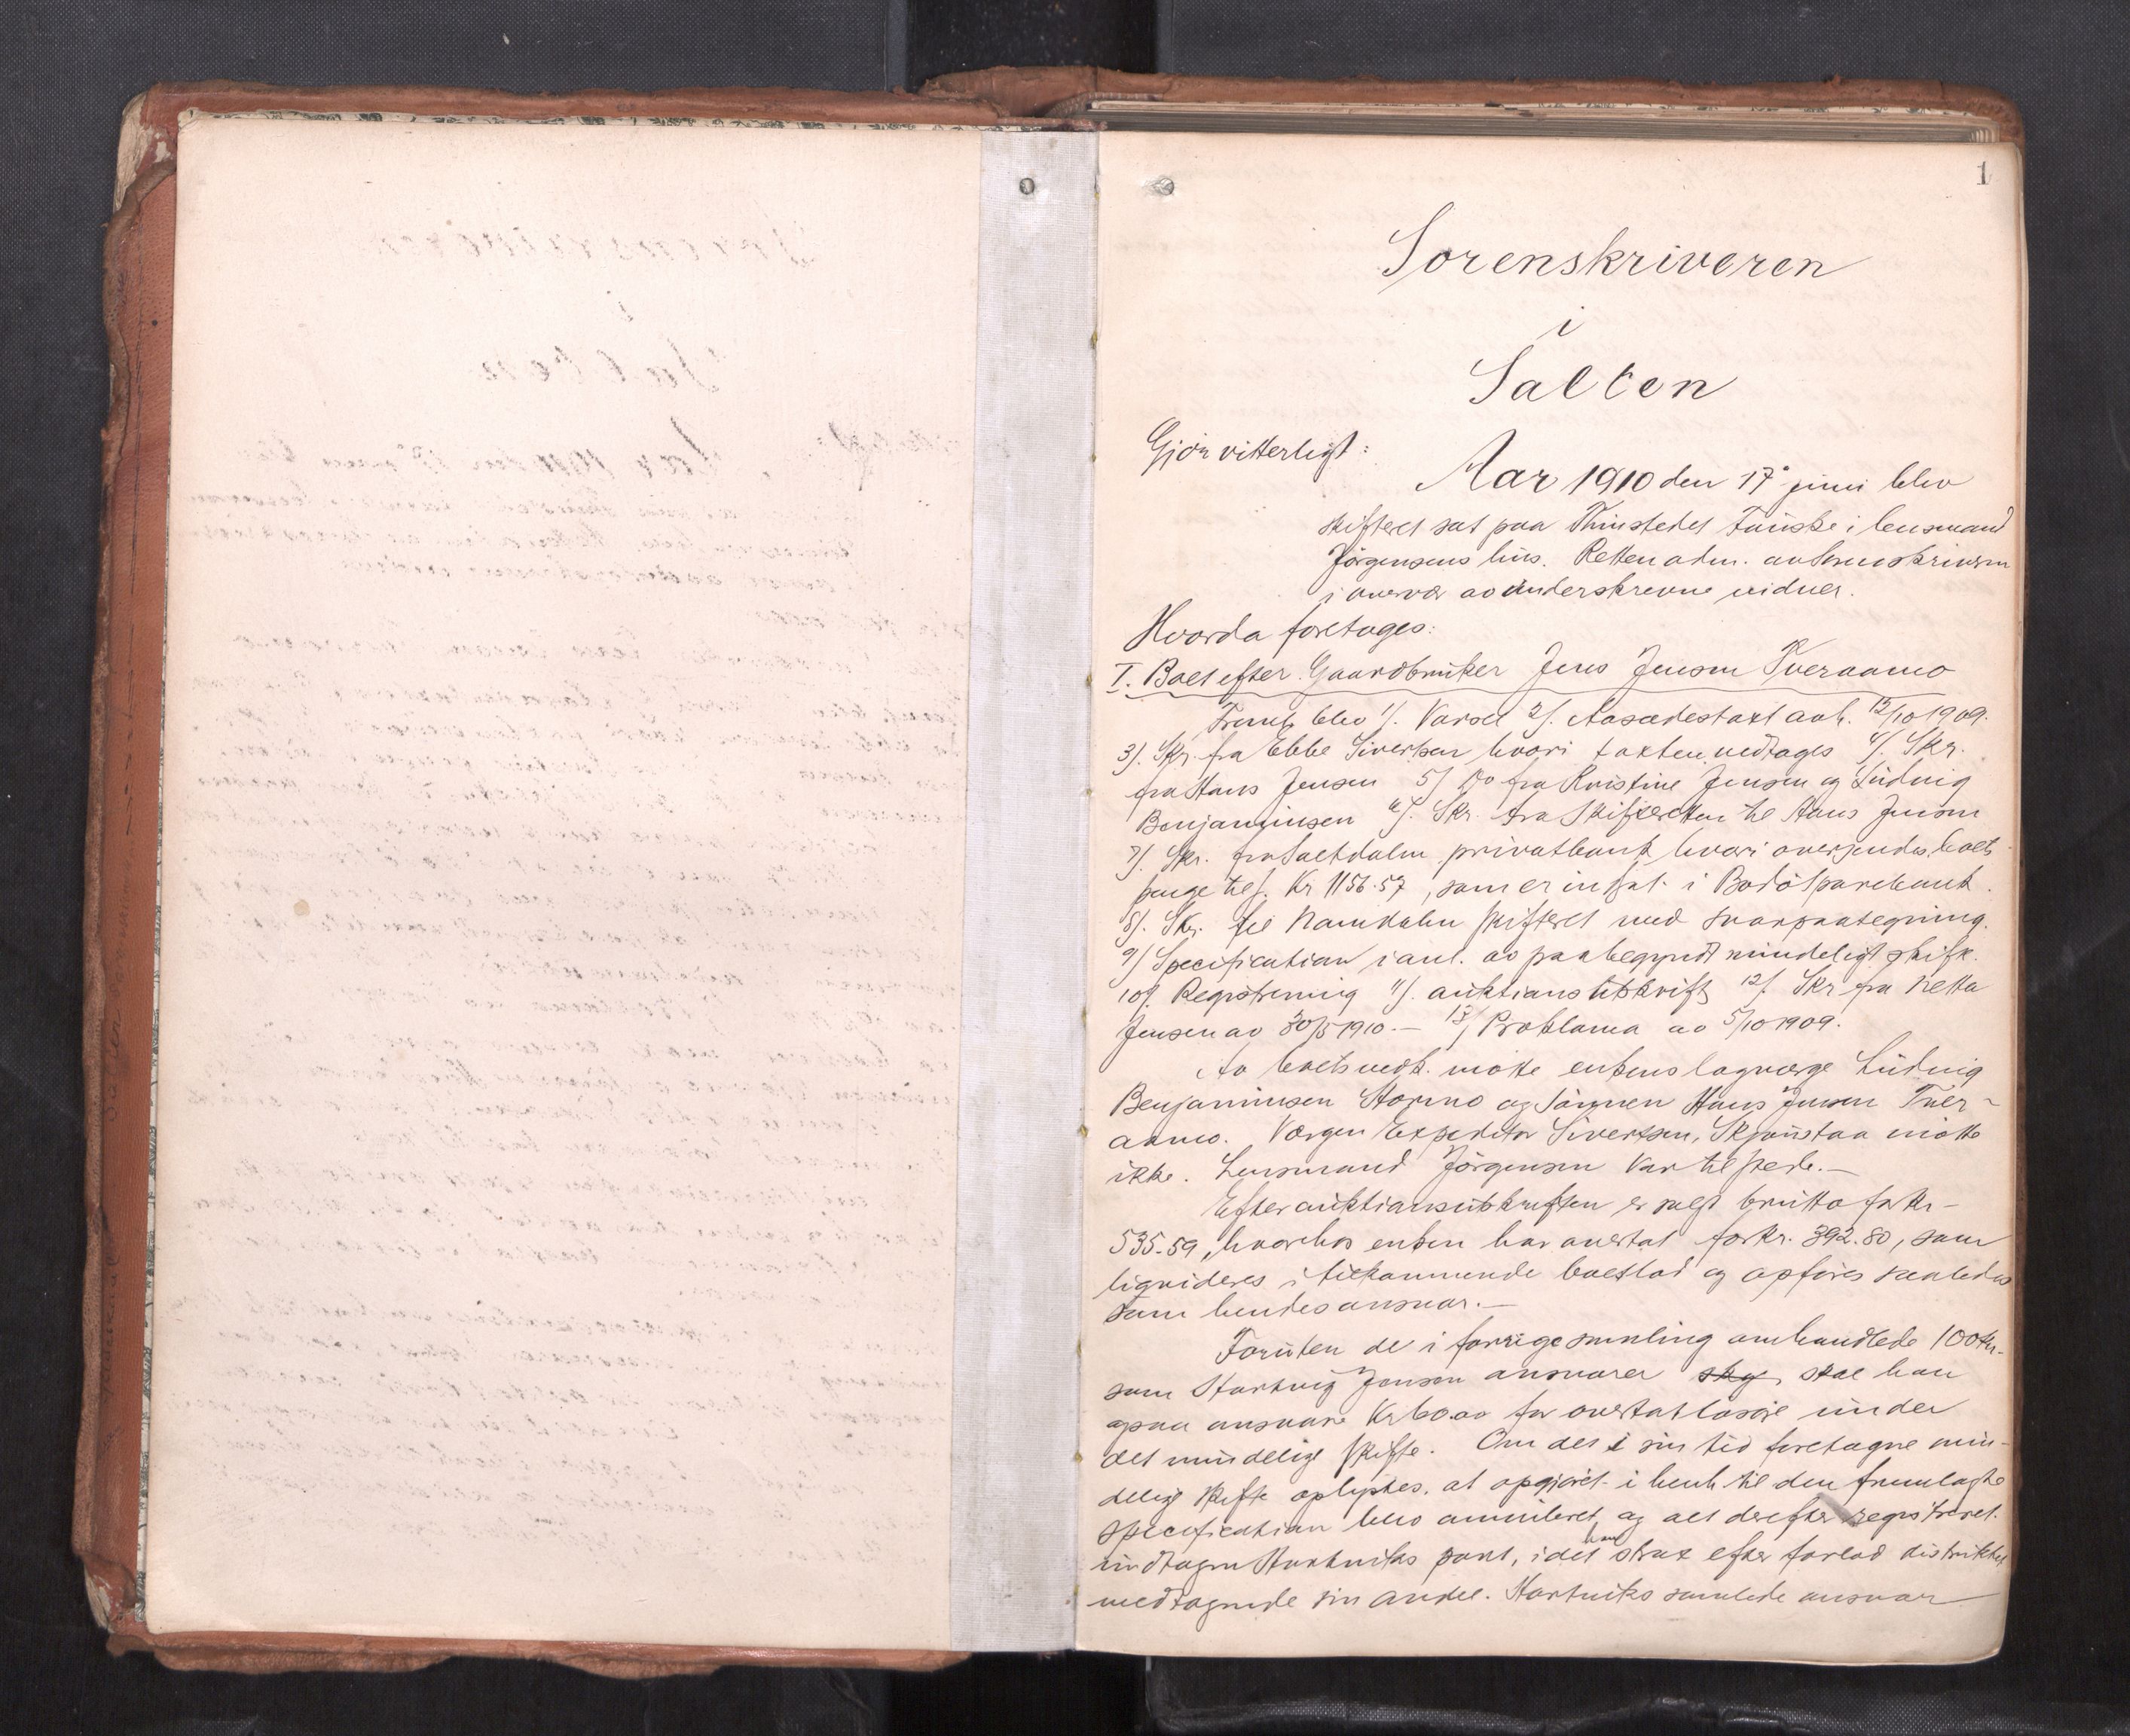 1
Sorenskriveren
i
Salten
Gjör vitterligt:
Aar 1910 den 17 juni blev
skifteret sat paa Thinstedet Fauske i lensmand
Jörgensens hus. Retten adm. av sorenskriveren
i overvær av underskrevne vidner.
Hvorda foretoges:
I. Boet efter Gaardbruker Jens Jensen Tveraamo
Freml. blev 1/. Varsel 2/. Aasædestaxt avh. 12/10 1909.
3/. Skr. fra Ebbe Sivertsen hvori taxten vedtages 4/. Skr.
fra Hans Jensen 5/ Do fra Kristine Jensen og Ludvig
Benjaminsen 6/. Skr. fra Skifteretten til Hans Jensen
7/. Skr. fra Saltdalen privatbank hvori oversendes boets
penge tils. Kr 1156.57, som er indsat i Bodö Sparebank.
8/. Skr. til Namdalen skifteret med svarpaategning.
9/ Specification i anl. av paabegyndt mindeligt skifte.
10/. Registrering 11/. auktionsutskrift 12/. Skr fra Netta
Jensen av 30/5 1910.- 13/ Proklama av 5/10 1909.
Av boets vedk. mötte enkens lagværge Ludvig
Benjaminsen Stormo og sönnen Hans Jensen Tver-
aamo. Værgen Expeditör Sivertsen, Skjönstaa mötte
ikke. Lensmand Jörgensen var tilstede.-
Efter auktionsutskriften er solgt brutto for kr-
535-59, hvorhos enken har overtat for kr. 392.80, som
liqvideres i tilkommende boeslod og opföres saaledes
som hendes ansvar.-
Foruten de i forrige samling omhandlede 100 kr-
som Hartvig Jensen ansvarer skg, skal han
ogsaa ansvare Kr 60.00 for overtat lösöre under
det mindelige skifte. Om det i sin tid foretagne min-
delige skifte oplystes, at opgjöret i henh. til den fremlagte
specification blev annuleret og alt derefter registreret.
undtagen Hartviks part, idet han strax efter forlod distriktet
medtagende sin andel. Hartviks samlede ansvar